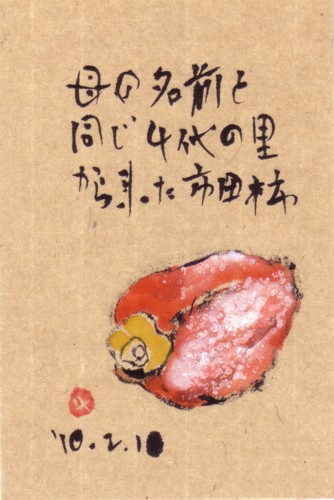 母の名前と
同じ千代の里
から来た市田柿
'10.2.10